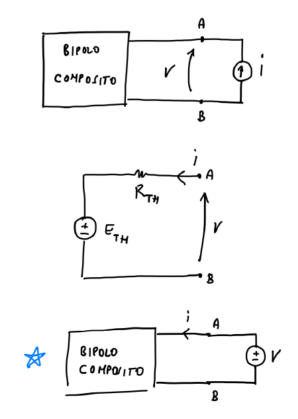 BIPOLO
COMPOSITO
A
V
i
B
i
A
R_TH
E_TH
V
B
i
A
BIPOLO
COMPOSITO
V
B